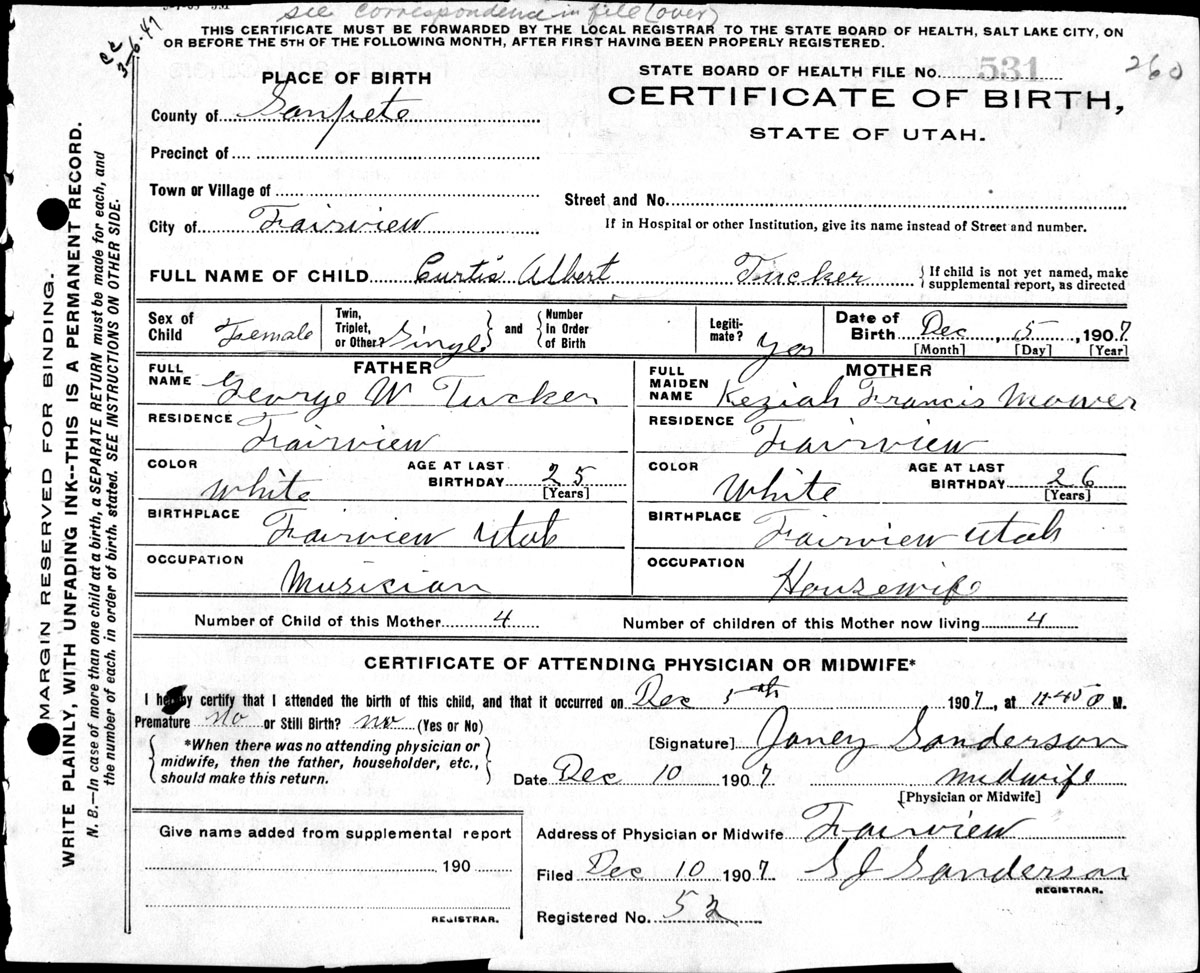 see correspondence in file (over)
cc
3-6-47
THIS CERTIFICATE MUST BE FORWARDED BY THE LOCAL REGISTRAR TO THE STATE BOARD OF HEALTH, SALT LAKE CITY, ON
OR BEFORE THE 5TH OF THE FOLLOWING MONTH, AFTER FIRST HAVING BEEN PROPERLY REGISTERED.
MARGIN RESERVED FOR BINDING.
WRITE PLAINLY, WITH UNFADING INK--THIS IS A PERMANENT RECORD.
N. B.—In case of more than one child at birth, a SEPARATE RETURN must be made for each, and
the number of each, in order of birth, stated. SEE INSTRUCTIONS ON OTHER SIDE.
PLACE OF BIRTH
County of Sanpete
Precinct of
Town or Village of
City of Fairview
STATE BOARD OF HEALTH FILE No. 531
260
CERTIFICATE OF BIRTH,
STATE OF UTAH.
Street and No.
If in Hospital or other Institution, give its name instead of Street and number.
FULL NAME OF CHILD Curtis Albert Tucker
If child is not yet named, make
supplemental report, as directed
Sex of Child Female
Twin, Triplet, or Other? Singl
and
Number In Order of Birth
Legiti-mate? yes
Date of Birth Dec, 5, 1907
[Month] [Day] [Year]
FATHER
FULL NAME George W Tucker
RESIDENCE Fairview
COLOR White
AGE AT LAST BIRTHDAY 25
[Years]
BIRTHPLACE Fairview Utah
OCCUPATION Musician
MOTHER
FULL MAIDEN NAME Keziah Francis Mower
RESIDENCE Fairview
COLOR White
AGE AT LAST BIRTHDAY 26
[Years]
BIRTHPLACE Fairview Utah
OCCUPATION Housewife
Number of Child of this Mother 4
Number of children of this Mother now living 4
CERTIFICATE OF ATTENDING PHYSICIAN OR MIDWIFE*
I hereby certify that I attended the birth of this child, and that it occurred on Dec 5th 1907, at M.
Premature No or Still Birth? no (Yes or No)
*When there was no attending physician or
midwife, then the father, householder, etc.,
should make this return.
[Signature] Janey Sanderson
Date Dec 10 1907 midwife
[Physician or Midwife]
Give name added from supplemental report
190
REGISTRAR.
Address of Physician or Midwife Fairview
Filed Dec 10 1907 S J Sanderson
REGISTRAR.
Registered No. 52